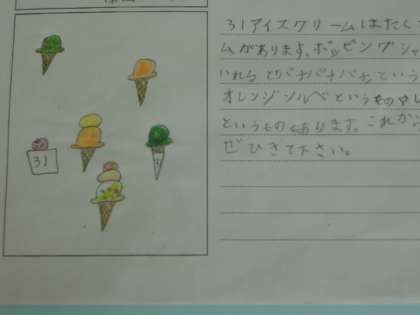 31アイスクリームはたく
ムがあります。ポッピングシャ
いれるとパチパチパチという
オレンジソルベというものやレ
というものもあります。これから
ぜひきて下さい。
31